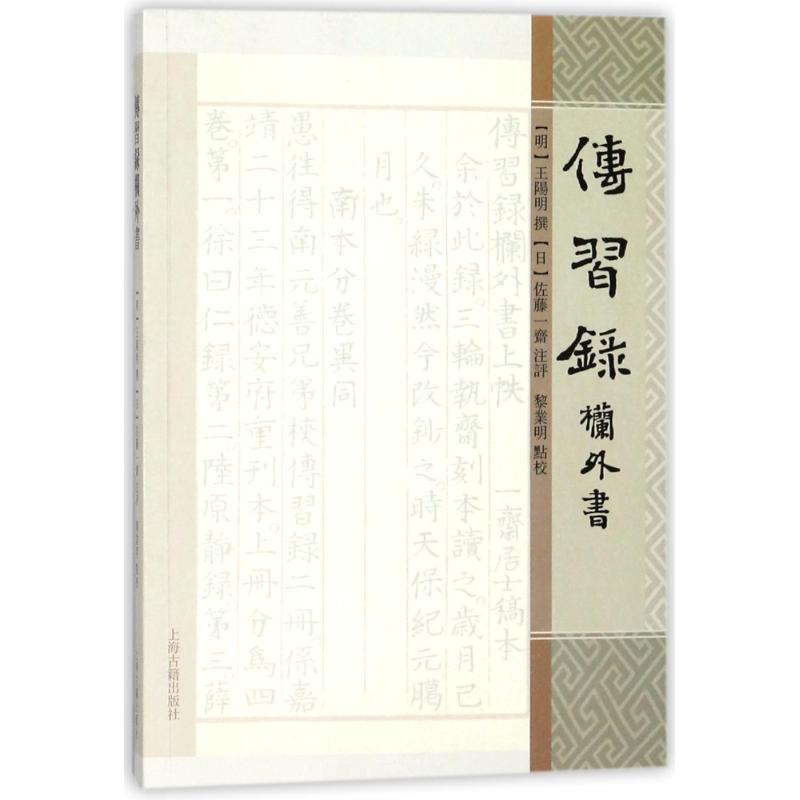 傳習録
欄外書
【明】王陽明 撰 【日】佐藤一齋 注評 黎業明 點校
傳習録欄外書上帙 一齋居士稿本
余於此録。三輪執齋刻本讀之。歲月已
久。朱緑漫然今改鈔之。時天保紀元臈
月也。
南本分卷異同
愚往得南元善兄弟校傳習録二冊。係嘉
靖二十三年德安府重刊本。上冊分爲四
卷。第一。徐曰仁録第二。陸原靜録第三。薛
上海古籍出版社
傳習録欄外書